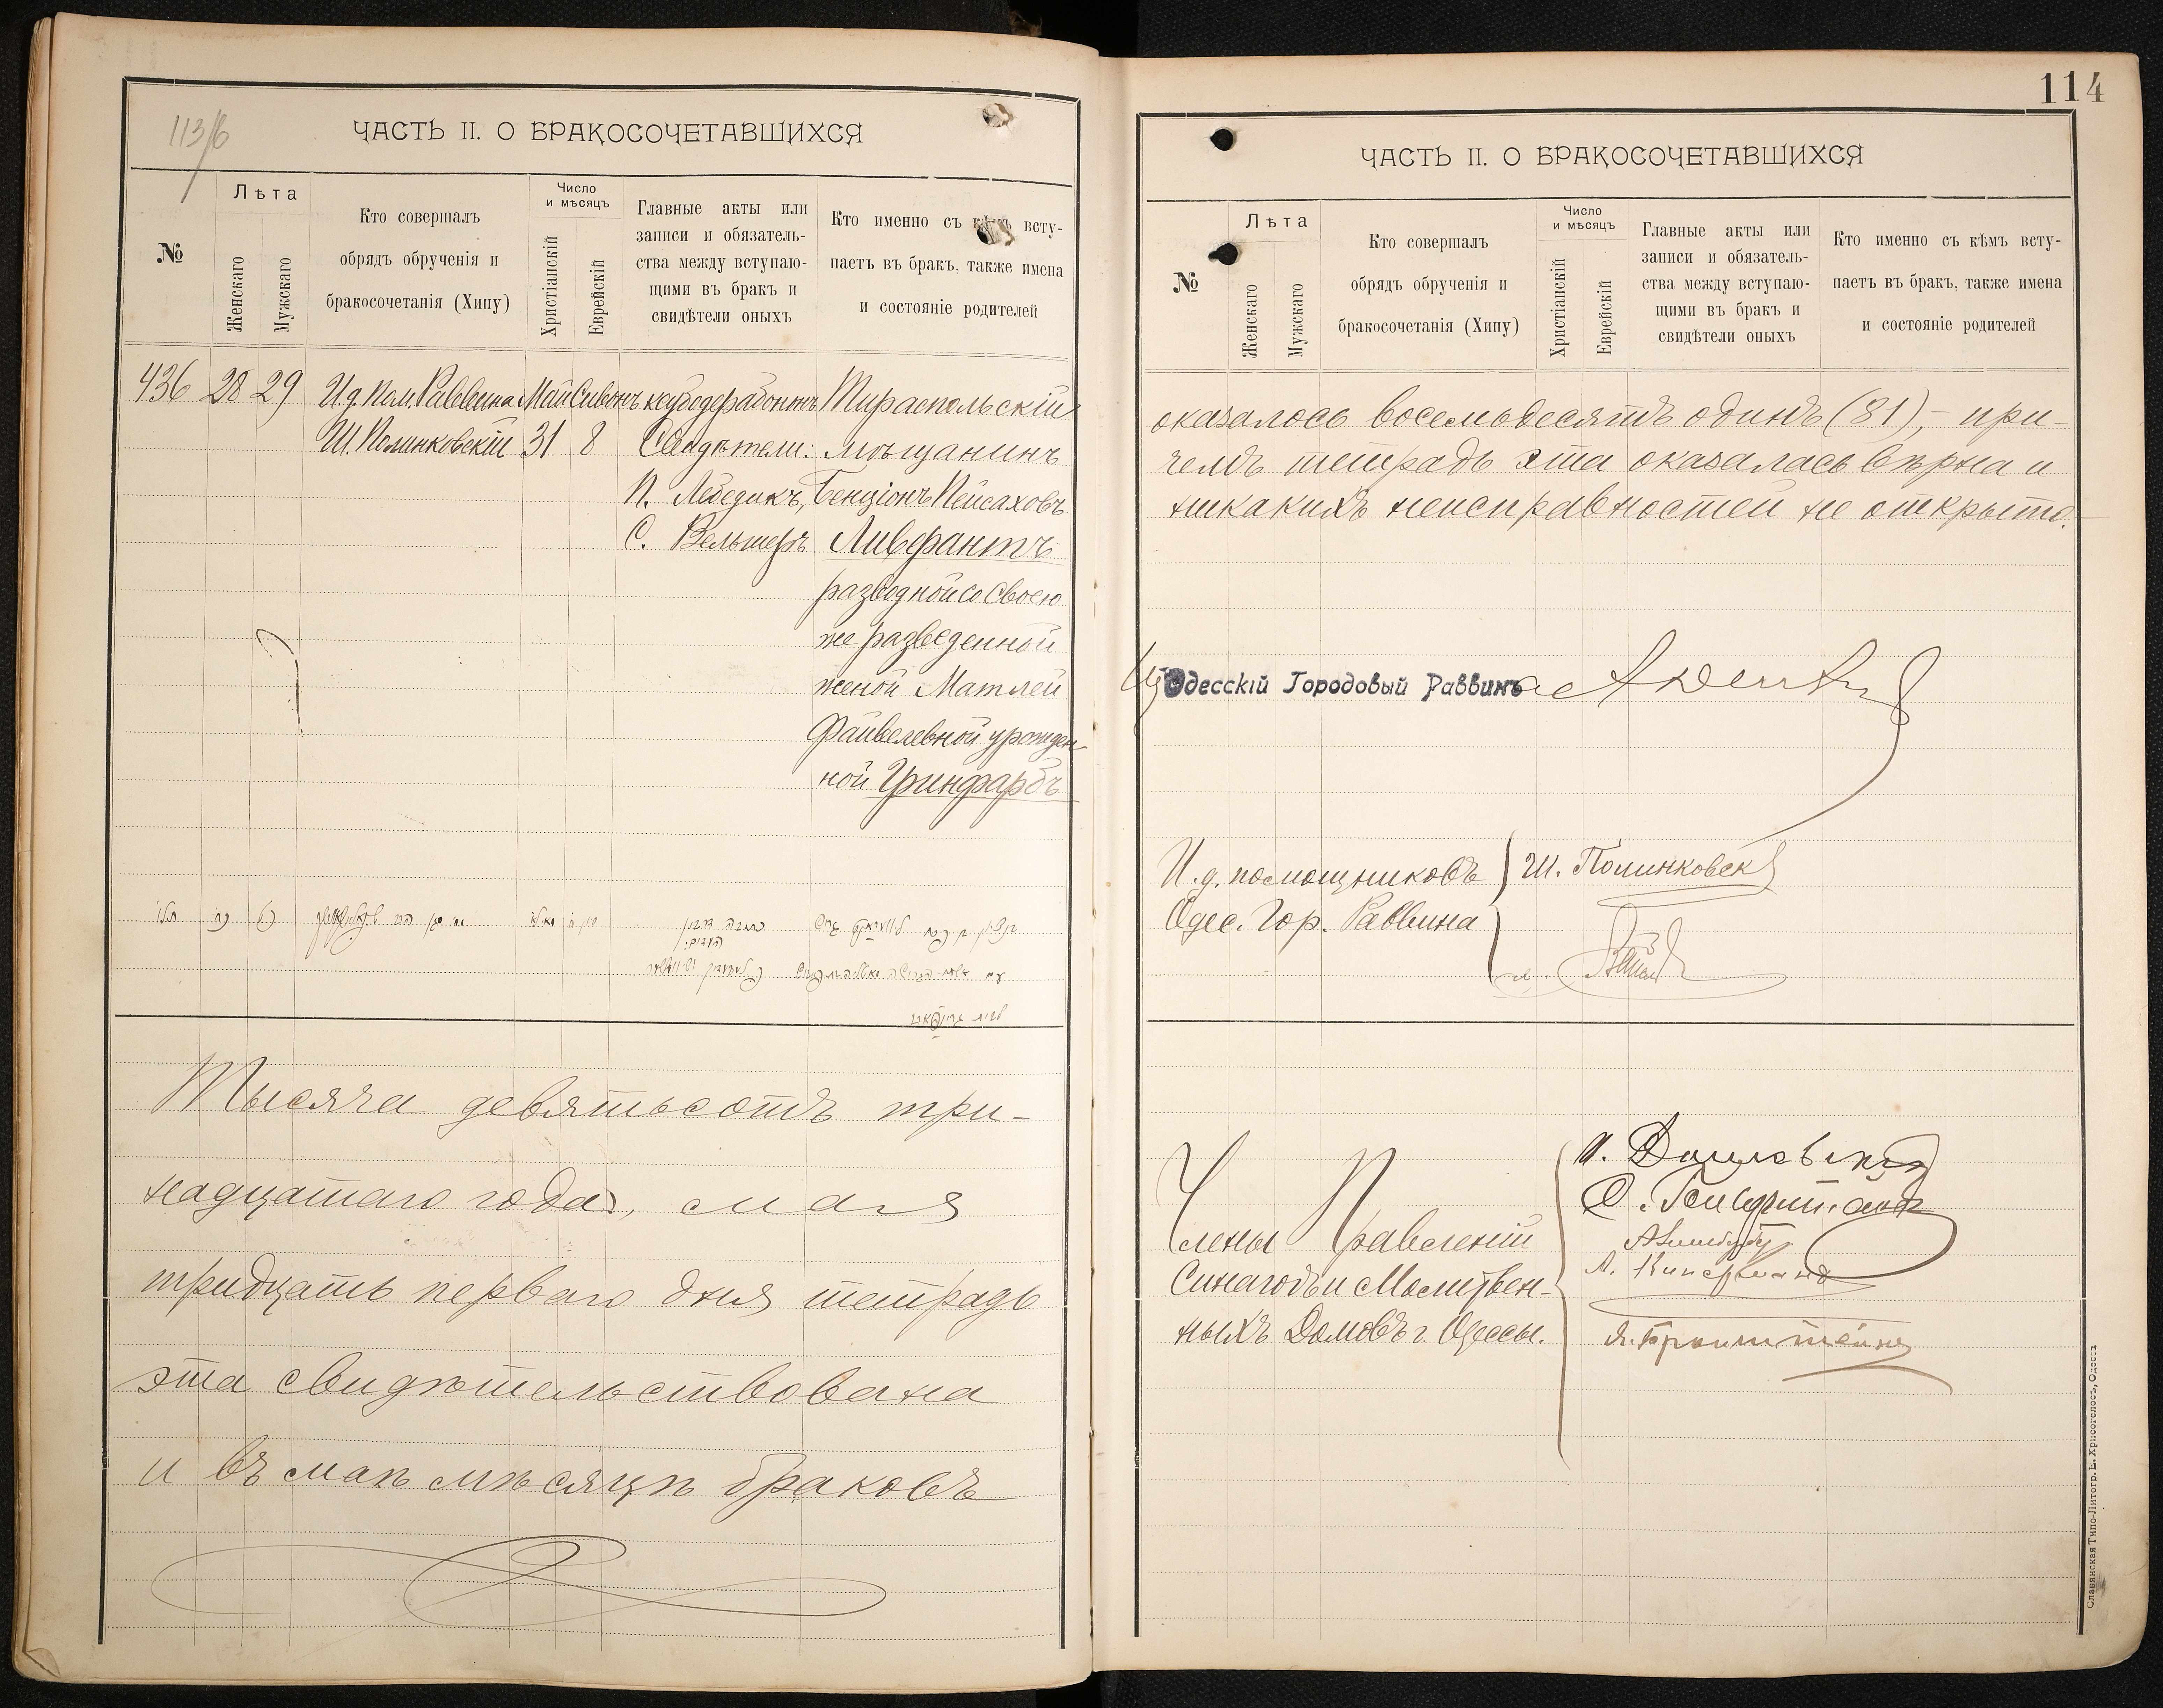 113/б
ЧАСТЬ II. О БРАКОСОЧЕТАВШИХСЯ
№
Лѣта
Женскаго
Мужскаго
Кто совершалъ
обрядъ обрученія и
бракосочетанія (Хипу)
Число
и мѣсяцъ
Христіанскій
Еврейскій
Главные акты или
записи и обязатель-
ства между вступаю-
щими въ бракъ и
свидѣтели оныхъ
Кто именно съ кѣмъ всту-
паетъ въ бракъ, также имена
и состояніе родителей
436 28 29 И.д. Пом. Раввина Май Сивонъ ксубодерабононъ Тираспольскій
Ш. Полинковскій 31 8 Свидѣтели: мѣщанинъ
П. Лебедикъ, Бенціонъ Пейсаховъ
С. Вельшеръ Ливфантъ
разводной со своею
же разведенной
женой Матлей
Файвелевной урожден-
ной Гринфарбъ
Тысяча девятьсотъ три-
надцатаго года, мая
тридцать перваго дня тетрадь
эта свидѣтельствована
и въ маѣ мѣсяцѣ браковъ
114
ЧАСТЬ II. О БРАКОСОЧЕТАВШИХСЯ
№
Лѣта
Женскаго
Мужскаго
Кто совершалъ
обрядъ обрученія и
бракосочетанія (Хипу)
Число
и мѣсяцъ
Христіанскій
Еврейскій
Главные акты или
записи и обязатель-
ства между вступаю-
щими въ бракъ и
свидѣтели оныхъ
Кто именно съ кѣмъ всту-
паетъ въ бракъ, также имена
и состояніе родителей
оказалось восемьдесятъ одинъ (81), - при-
чемъ тетрадь эта оказалась вѣрна и
никакихъ неисправностей не открыто.
Одесскій Городовый Раввинъ
И.д. помощниковъ Ш. Полинковск
Одес. Гор. Раввина
Члены Правленій
Синагогъ и Молитвен-
ныхъ Домовъ г. Одессы.
Л. Киперманъ
Я. Бронштейнъ
Славянская Типо-Литогр. Е. Хрисогелосъ, Одесса